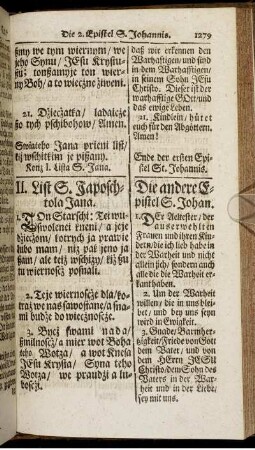 Die 2. Epistel S. Johannis.
1279
ßmy we tym wiernym/ we
jeho Synu/ JESu Krystu-
ton wier-
ny Boh/ a to wieczne žiweni.
21. Dźieczatka/ ladajcze
ßo tych pschibohow/ Amen.
Swiateho Jana prieni list/
Konz I. Lista S. Jana.
II. List S. Japosch-
tola Jana.
1. Ton Starschi: Tei wu-
Swolenei kneni/ a jeje
dźieczom/ kotrych ja prawie
lubo mam/ niz pak jeno ja
ßam/ ale teiz wschizy/ kiz ßu
tu wiernosz posnali.
2. Teje wiernosze dla/ ko-
traz we nas sawostane/ a ßna-
mi budze do wiecznosze.
3. Bycz ßwami nada/
ßmilnosz/ a mier wot Boha
teho Wotza/ a wot Knesa
JESu Krysta/ Syna teho
Wotza/ we prawdzi a lu-
boszi.
daß wir erkennen den
Warhaftigen/ und sind
in dem Warhafftigen/
in seinem Sohn JEsu
Christo. Dieser ist der
warhafftige GOtt/ und
das ewige Leben.
21. Kindlein/ hütet
euch für den Abgöttern.
Amen!
Ende der ersten Epi-
stel St. Johannis.
Die andere E-
pistel S. Johan.
1. DEr Aeltester/ der
auserwehlten
Frauen und ihren Kin-
dern/ die ich lieb habe in
der Warheit und nicht
allein ich/ sondern auch
alle die die Warheit er-
kant haben.
2. Um der Warheit
willen/ die in uns blei-
bet/ und bey uns seyn
wird in Ewigkeit.
3. Gnade/ Barmher-
tzigkeit/ Friede von Gott
dem Vater/ und von
dem HErrn JESU
Christo/ dem Sohn des
Vaters in der War-
heit und in der Liebe/
sey mit uns.